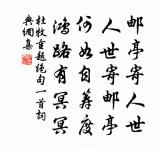 郵亭寄人世
人世寄郵亭
何如自籌度
鴻路有冥冥
杜牧重題絕句一首詞
典網集